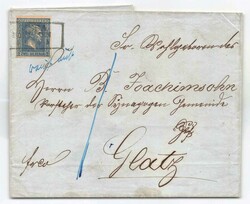 Sr. Wohlgeboren des
Herrn B. Joachimsohn
Vorsteher der Synagogen Gemeinde
frco
Glatz